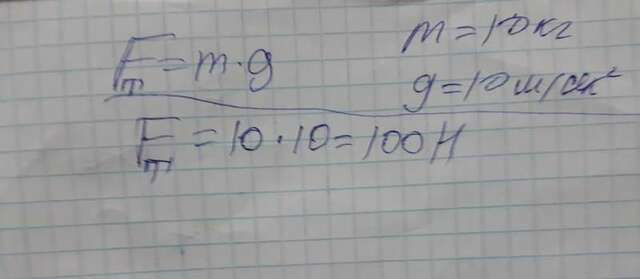 Fт = m · g
m = 10 кг
g = 10 м/сек²
Fт = 10 · 10 = 100 Н